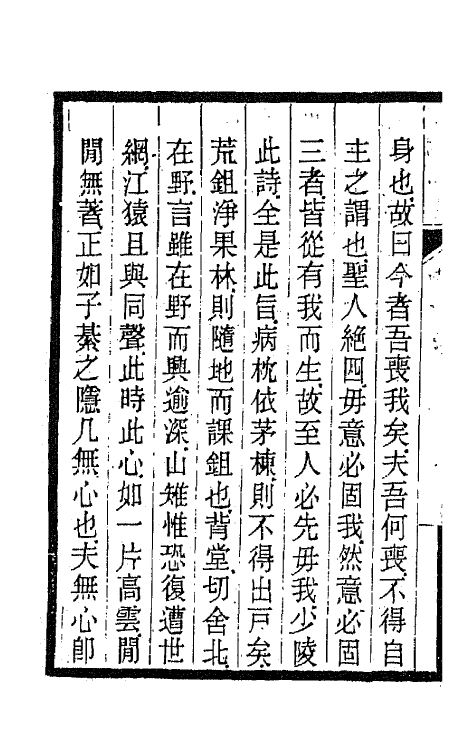 身也故曰今者吾喪我矣夫吾何喪不得自
主之謂也聖人絶四毋意必固我然意必固
三者皆從有我而生故至人必先毋我少陵
此詩全是此旨病枕依茅棟則不得出戸矣
荒鉏淨果林則隨地而課鉏也背堂切舍北
在野言雖在野而興逾深山雉惟恐復遭世
網江猿且與同聲此時此心如一片高雲閒
閒無著正如子綦之隱几無心也夫無心卽